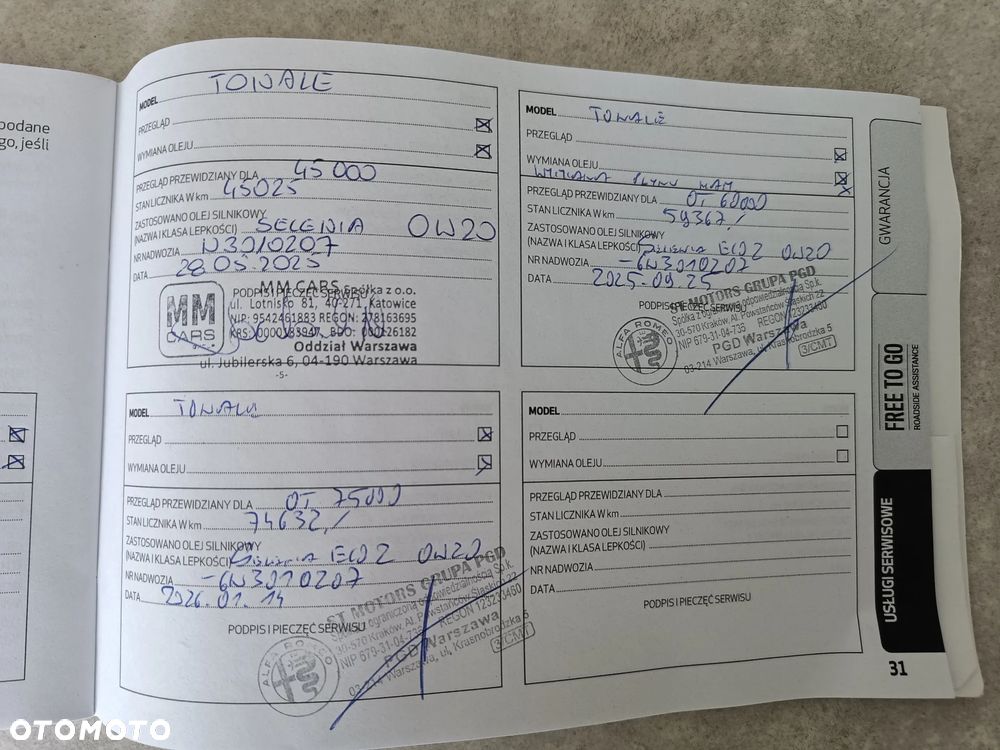 podane
go, jeśli
MODEL TONALE
PRZEGLĄD
WYMIANA OLEJU
PRZEGLĄD PRZEWIDZIANY DLA 45 000
STAN LICZNIKA W km 45025
ZASTOSOWANO OLEJ SILNIKOWY
(NAZWA I KLASA LEPKOŚCI) SELENIA 0W20
NR NADWOZIA N3010207
DATA 28.05.2025
PODPIS I PIECZĘĆ SERWISU
MM CARS
MM CARS Spółka z o.o.
ul. Lotnisko 81, 40-271, Katowice
NIP: 9542461883 REGON: 278163695
Oddział Warszawa
ul. Jubilerska 6, 04-190 Warszawa
-5-
MODEL TONALE
PRZEGLĄD
WYMIANA OLEJU
WYMIANA PŁYNU HAM
PRZEGLĄD PRZEWIDZIANY DLA OT 60000
STAN LICZNIKA W km 59367,/
ZASTOSOWANO OLEJ SILNIKOWY
(NAZWA I KLASA LEPKOŚCI) Selenia ECO2 0W20
NR NADWOZIA -6N3010207
DATA 2025.09.25
PODPIS I PIECZĘĆ SERWISU
ALFA ROMEO
ST MOTORS GRUPA PGD
Spółka z ograniczoną odpowiedzialnością Sp.k.
30-570 Kraków, Al. Powstańców Śląskich 22
NIP 679-31-04-738 REGON 123233460
PGD Warszawa
03-214 Warszawa, ul. Krasnobrodzka 5
3/CMT
MODEL TONALE
PRZEGLĄD
WYMIANA OLEJU
PRZEGLĄD PRZEWIDZIANY DLA OT 75000
STAN LICZNIKA W km 74632,/
ZASTOSOWANO OLEJ SILNIKOWY
(NAZWA I KLASA LEPKOŚCI) Selenia ECO2 0W20
NR NADWOZIA -6N3010207
DATA 2026.01.14
PODPIS I PIECZĘĆ SERWISU
ALFA ROMEO
ST MOTORS GRUPA PGD
Spółka z ograniczoną odpowiedzialnością Sp.k.
30-570 Kraków, Al. Powstańców Śląskich 22
NIP 679-31-04-738 REGON 123233460
PGD Warszawa
03-214 Warszawa, ul. Krasnobrodzka 5
3/CMT
MODEL
PRZEGLĄD
WYMIANA OLEJU
PRZEGLĄD PRZEWIDZIANY DLA
STAN LICZNIKA W km
ZASTOSOWANO OLEJ SILNIKOWY
(NAZWA I KLASA LEPKOŚCI)
NR NADWOZIA
DATA
PODPIS I PIECZĘĆ SERWISU
GWARANCJA
FREE TO GO
ROADSIDE ASSISTANCE
USŁUGI SERWISOWE
31
OTOMOTO